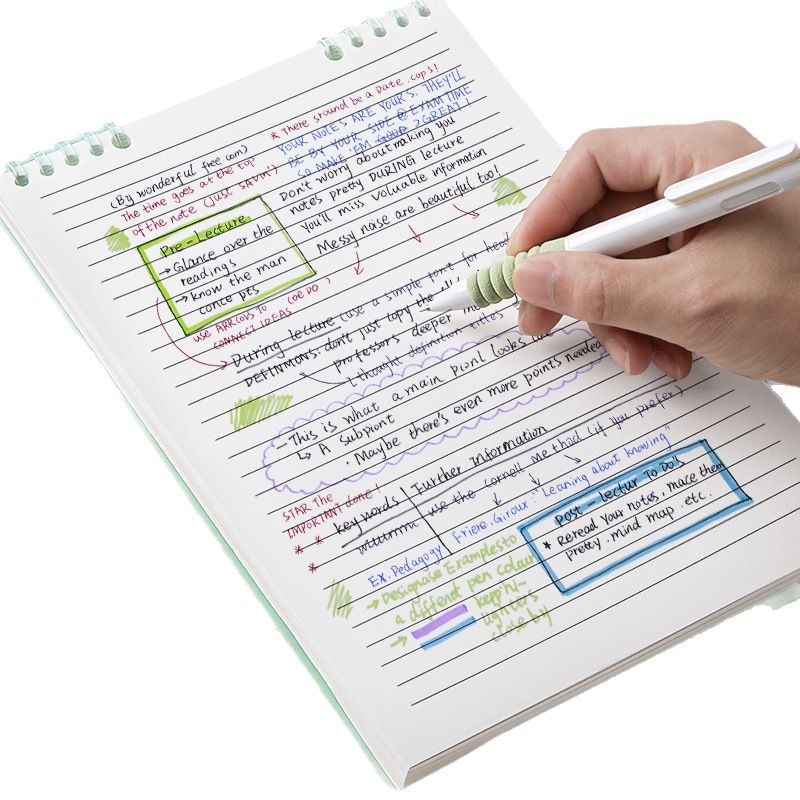 * There stound be a Date .cops!
(By wonderful free com)
The time goes at the top
of the note (just SAYin')
YOUR NOTES ARE YOURS. THEY'LL
BE BY YOUR SIDE @ EXAM TIME
SO MAKE 'EM GOOD 2 GREAT!
Don't worry about making you
notes pretty DURING lecture
You'll miss valuable information
Messy noise are beautiful too!
Pre-Lecture
→ Glance over the
readings
→ know the man
conce pts
use ARROWS TO
CONNECT IDEAS
During lecture (use a simple font for head
DEFINMONS: don't just copy the
professors deeper
[thought definition titles
This is what a main pionl looks
↳ A Subpiont
. Maybe there's even more points needed
STAR The
IMPORTANT done!
* *
*
keywords
Further Information
use the cornell me thod (if you prefer)
Friere, Giroux: "Leaning about knowing"
Ex. Pedagogy
post - lectur TO DO'S
* reread your notes, mace them
pretty . mind map . etc.
→ Designase Examples to
a diffenct pen colour
→
kepphi-
lighters
close by